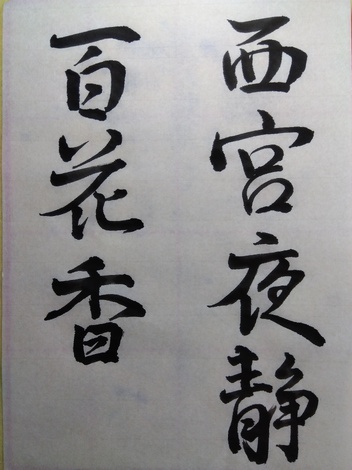 西宫夜静
百花香